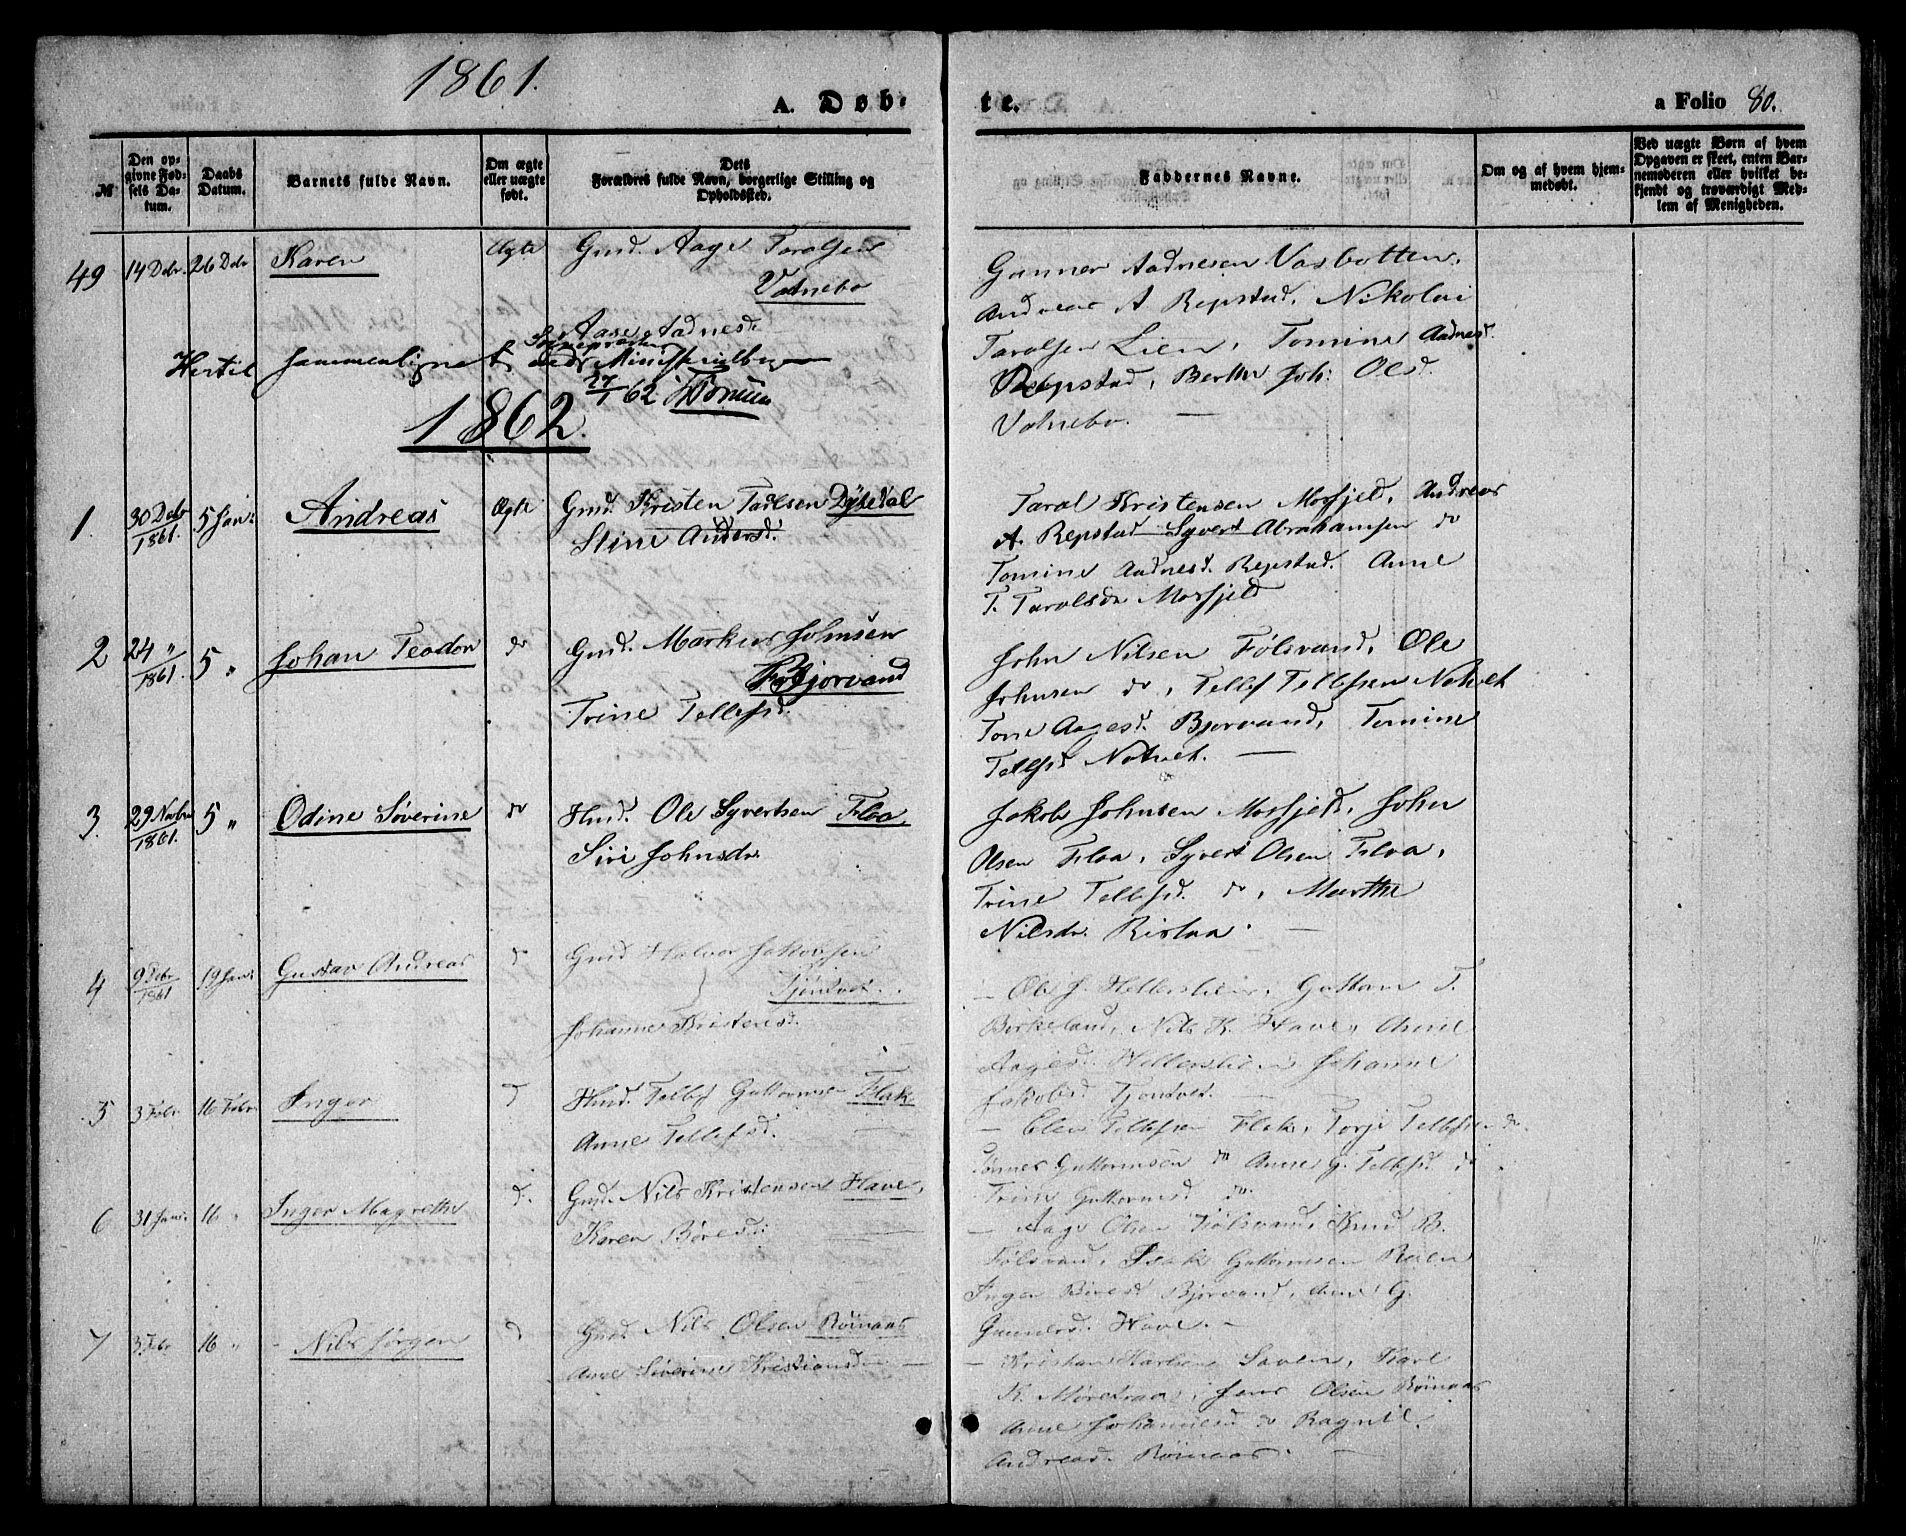 1861.
A. Døb-
te.
a Folio 80.
№
Den op-
givne Fød-
sels Da-
tum.
Daabs
Datum.
Barnets fulde Navn.
Om ægte
eller uægte
født.
Dets
Forældres fulde Navn, borgerlige Stilling og
Opholdssted.
Faddernes Navne.
Om og af hvem hjem-
medøbt.
Ved uægte Børn af hvem
Opgaven er skeet, enten Bar-
nemoderen eller hvilket be-
kjendt og troværdigt Med-
lem af Menigheden.
49 14 Debr. 26 Debr Karen Ægte Gmd. Aage Taralsen
Vatnebo
Aase Aadnesd.
Gunner Aadnesen Vasbotten,
Andreas A Repstad, Nikolai
Taralsen Lien, Tomine Aadnesd.
Repstad, Berthe Joh: Olsd.
Vatnebo. —
Hertil sammenlignet med Sognepræstens Ministerialbog
27/1 62
1862.
1. 30 Debr 1861. 5 Jan: Andreas Ægte Gmd. Kristen Tarlsen Dysedal
Stine Andersd.
Taral Kristensen Mosfjeld, Andreas
A. Repstad Syvert Abrahamsen do
Tomine Aadnesd. Repstad. Anne
T. Taralsdr Mosfjeld
2 24 " 1861. 5 " Johan Teodor do Gmd. Markus Johnsen
Bjorvand
Trine Tellefsd.
John Nilsen Følsvand, Ole
Johnsen do, Tellef Tellefsen Natvet
Tone Aagesd. Bjorvand, Tomine
Tellfsd Natvet. —
3. 29 Novbr 1861. 5 " Odine Søverine do Hmd. Ole Syvertsen Flaa.
Siri Johnsdr.
Jakob Johnsen Mosfjeld, John
Olsen Flaa, Syvert Olsen Flaa,
Trine Tellefsd. do, Marthe
Nilsdr. Rislaa. —
4 9 Debr 1861 19 Jan: Gustav Andreas d Gmd Halvor Jakobsen
Tjøntvet.
Johanne Kristensd.
— Ole J. Hellerslien, Guttorm T.
Birkeland, Nils K. Have, Anne
Aagesd. Hellerslien Johanne
Jakobsd Tjontvet.
5 3 Febr. 16 Febr. Inger d Hmd. Tellef Guttormse Flak
Anne Tellefsd.
— Elen Tellefsen Flak, Torje Tellefsen do.
Tønnes Guttormsen do Anne G. Tellefsd. do
Trine Guttormsd do.
6 31 Jan: 16 " Inger Magrethe d. Gmd. Nils Kristensen Have,
Karen Børesd:
— Aage Olsen Følsvand, Knud B.
Følsvand, Isak Guttormsen
Inger Børesd Bjorvand, Anne G.
Gunnersd. Have. —
7 3 Febr 16 " Nils Jørgen d Gmd. Nils Olsen Røinaas
Anne Søverine Kristiansd —
— Kristian Karlsen Lauen, Karl
K. Møretraa, Jens Olsen Røinaas
Anne Johannesd. do Ragnil
Andreasd. Røinaas. —